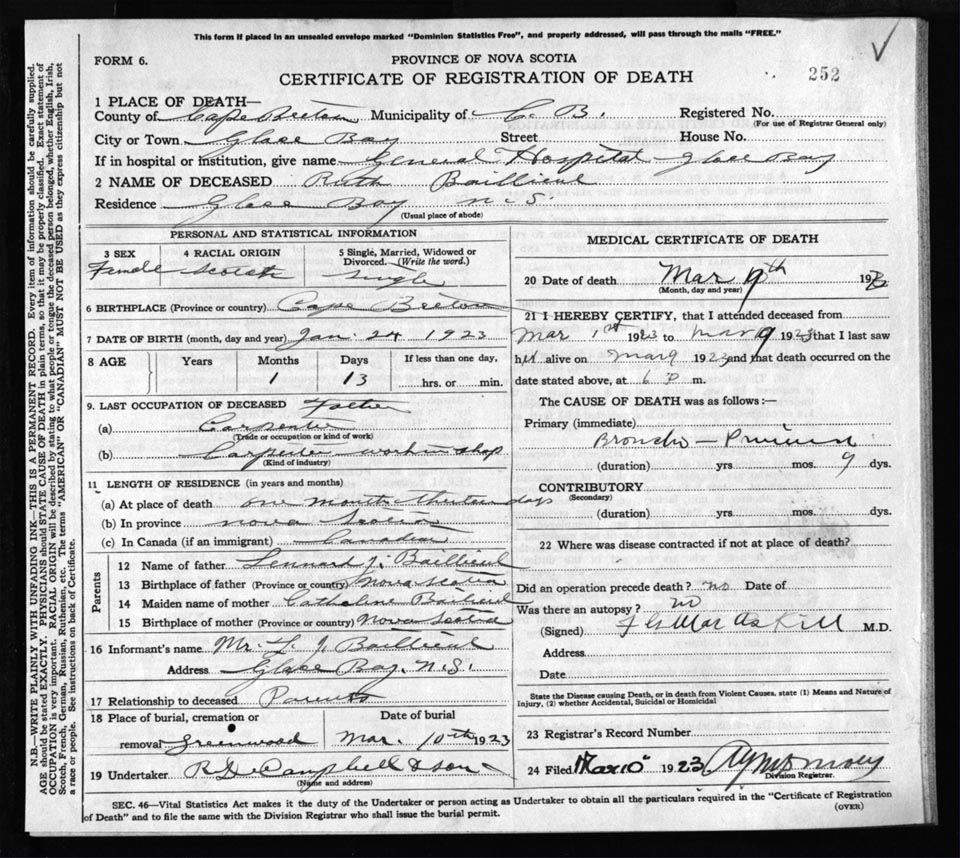 This form if placed in an unsealed envelope marked "Dominion Statistics Free", and properly addressed, will pass through the mails "FREE."
FORM 6.
PROVINCE OF NOVA SCOTIA
CERTIFICATE OF REGISTRATION OF DEATH
252
1 PLACE OF DEATH—
County of Cape Breton Municipality of C. B. Registered No.
(For use of Registrar General only)
City or Town Glace Bay Street House No.
If in hospital or institution, give name General Hospital - Glace Bay
2 NAME OF DECEASED Ruth Baillieul
Residence Glace Bay N.S.
(Usual place of abode)
PERSONAL AND STATISTICAL INFORMATION
3 SEX 4 RACIAL ORIGIN 5 Single, Married, Widowed or Divorced. (Write the word.)
Female Scotch Single
6 BIRTHPLACE (Province or country) Cape Breton
7 DATE OF BIRTH (month, day and year) Jan. 24 1923
8 AGE Years Months Days If less than one day,
1 13 hrs. or min.
9. LAST OCCUPATION OF DECEASED Father
(a) Carpenter
(Trade or occupation or kind of work)
(b) Carpenter work in shop
(Kind of industry)
11 LENGTH OF RESIDENCE (in years and months)
(a) At place of death one month thirteen days
(b) In province Nova Scotia
(c) In Canada (if an immigrant) Canadian
Parents
12 Name of father Lennard J. Baillieul
13 Birthplace of father (Province or country) Nova Scotia
14 Maiden name of mother Catherine Baillieul
15 Birthplace of mother (Province or country) Nova Scotia
16 Informant's name Mr. L. J. Baillieul
Address Glace Bay, N.S.
17 Relationship to deceased Parents
18 Place of burial, cremation or Date of burial
removal Greenwood Mar. 10th 1923
19 Undertaker R D Campbell & Son
(Name and address)
MEDICAL CERTIFICATE OF DEATH
20 Date of death Mar 9th 192
(Month, day and year)
21 I HEREBY CERTIFY, that I attended deceased from
Mar 1st 1923 to Mar 9 1923 that I last saw
her alive on Mar 9 1923 and that death occurred on the
date stated above, at 6 P. m.
The CAUSE OF DEATH was as follows:—
Primary (immediate)
Broncho-Pneumonia
(duration) yrs. mos. 9 dys.
CONTRIBUTORY
(Secondary)
(duration) yrs. mos. dys.
22 Where was disease contracted if not at place of death?
Did an operation precede death? no Date of
Was there an autopsy? no
(Signed) MacAskill M.D.
Address
Date
State the Disease causing Death, or in death from Violent Causes, state (1) Means and Nature of Injury, (2) whether Accidental, Suicidal or Homicidal
23 Registrar's Record Number
24 Filed Mar 10 1923
Division Registrar.
SEC. 46—Vital Statistics Act makes it the duty of the Undertaker or person acting as Undertaker to obtain all the particulars required in the "Certificate of Registration
of Death" and to file the same with the Division Registrar who shall issue the burial permit.
(OVER)
N.B.—WRITE PLAINLY WITH UNFADING INK—THIS IS A PERMANENT RECORD. Every item of information should be carefully supplied.
AGE should be stated EXACTLY. PHYSICIANS should STATE CAUSE OF DEATH in plain terms, so that it may be properly classified. Exact statement of
OCCUPATION is very important. RACIAL ORIGIN will be described by stating to what people or tongue the deceased person belonged, whether English, Irish,
Scotch, French, German, Russian, Ruthenian, etc. The terms "AMERICAN" OR "CANADIAN" MUST NOT BE USED as they express citizenship but not
a race or people. See instructions on back of Certificate.